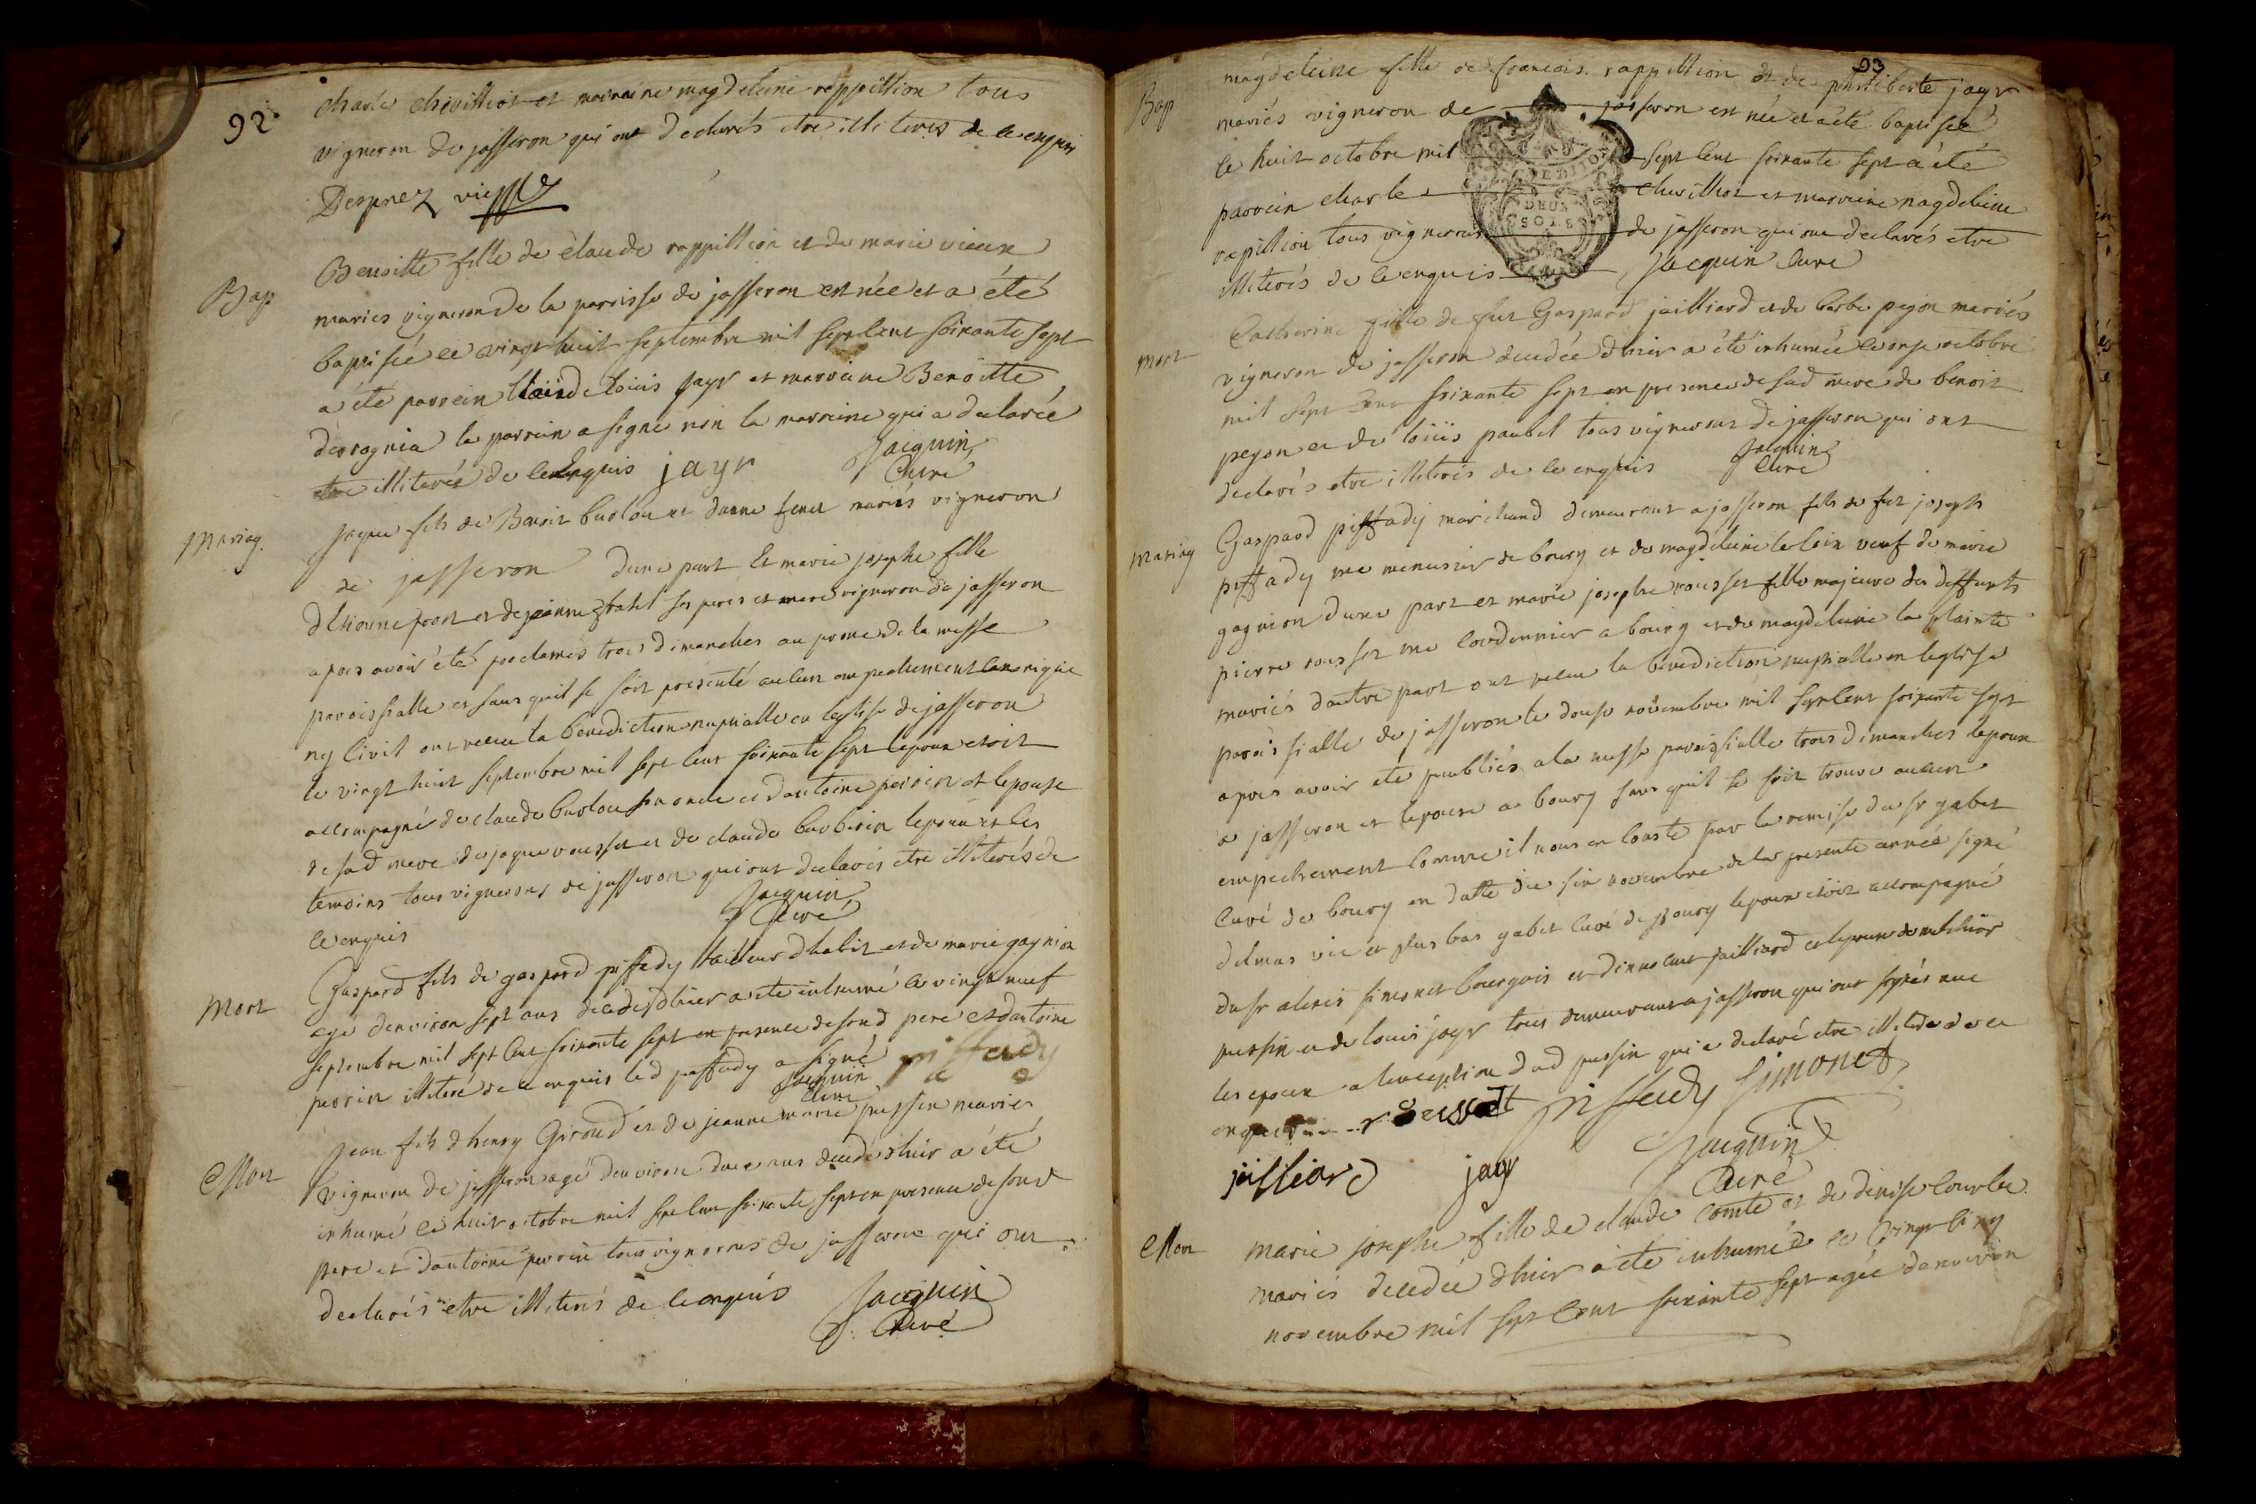 92
charle chivilliot et marraine magdeleine rappillion tous
vigneron de jasseron qui ont declarés etre illiteres de ce enquis
Desprez vic
Bap
Benoitte fille de claude rappillion et de marie vieux
mariés vigneron de la parroisse de jasseron est née et a été
baptisée le vingt huit septembre mil sept cent soixante sept
a été parrein louis jayr et marraine Benoitte
la parrein a signé non la marraine qui a declarée
etre illiterée de ce enquis jayr Jacquin
Curé
Mariag.
Jaque fils de Benoit buclou et danne feuet mariés vigneron
de jasseron dune part et marie josephe fille
ses peres et mere vigneron de jasseron
apres avoir été proclamés trois dimanches au prone de la messe
paroissialle et sans quil se soit presenté aucun empechement canonique
ny civil ont receu la benediction nuptialle en leglise de jasseron
le vingt huit septembre mil sept cent soixante sept lepoux etoit
accompagné de claude buclou son oncle et dantoine perrin et lepouse
de sad mere de jaque rousset et de claude barberin lepoux et les
temoins tous vignerons de jasseron qui ont declarés etre illiterés de
ce enquis Jacquin
Curé
Mort
Gaspard fils de gaspard piffady tailleur dhabit et de marie gagnion
age denviron sept ans decedé dhier a ete inhumé le vingt neuf
septembre mil sept cent soixante sept en presence de sond pere et dantoine
perrin illiteré de ce enquis led piffady a signé piffady
Jacquin
Curé
Mort
Jean fils dhenry Giroud et de jeanne marie pussin mariés
vigneron de jasseron agé denviron deux ans decedé dhier a été
inhumé le huit octobre mil sept cent soixante sept en presence de sond
pere et dantoine perrin tous vignerons de jasseron qui ont
declarés etre illiterés de ce enquis Jacquin
Curé
93
Bap
magdeleine fille de francois rappillion et de philiberte jayr
mariés vigneron de jasseron est née et a été baptisée
le huit octobre mil sept cent soixante sept a été
parrein charle chivilliot et marreine magdeleine
rapillion tous vignerons de jasseron qui ont declarés etre
illiterés de ce enquis Jacquin Curé
mort
Catherine fille de feu Gaspard jailliard et de barbe pegon mariés
vigneron de jasseron decedée dhier a été inhumée le onze octobre
mil sept cent soixante sept en presence de sad mere de benoit
pegon et de louis paubel tous vignerons de jasseron qui ont
declarés etre illiterés de ce enquis Jacquin
Curé
Mariag
Gaspard piffady marchand demeurant a jasseron fils de feu joseph
piffady me menusier de bourg et de magdeleine veuf de marie
gagnion dune part et marie josephe rousset fille majeure des deffunts
pierre rousset me cordonnier a bourg et de magdeleine la plainte
mariés dautre part ont receu la benediction nuptialle en leglise
paroissialle de jasseron le douse novembre mil sept cent soixante sept
apres avoir ete publiés a la messe paroissialle trois dimanches lepoux
a jasseron et lepouse a bourg sans quil se soit trouvé aucun
empechement comme il nous en conste par la remise du sr gabet
curé de bourg en datte du six novembre de la presente année signé
delmas vic et plus bas gabet curé de bourg lepoux etoit accompagné
du sr alexis simonet bourgeois et dinnocent jailliard et lepouse de melchior
pussin et de louis jayr tous demeurants a jasseron qui ont signés avec
les epoux a lexception dud pussin qui a declaré etre illiteré de ce
enquis rousset piffady simonet
jailliard jayr Jacquin
Curé
Mort
marie josephe fille de claude comte et de denise courbe
mariés decedée dhier a été inhumée le vingt cinq
novembre mil sept cent soixante sept agée denviron